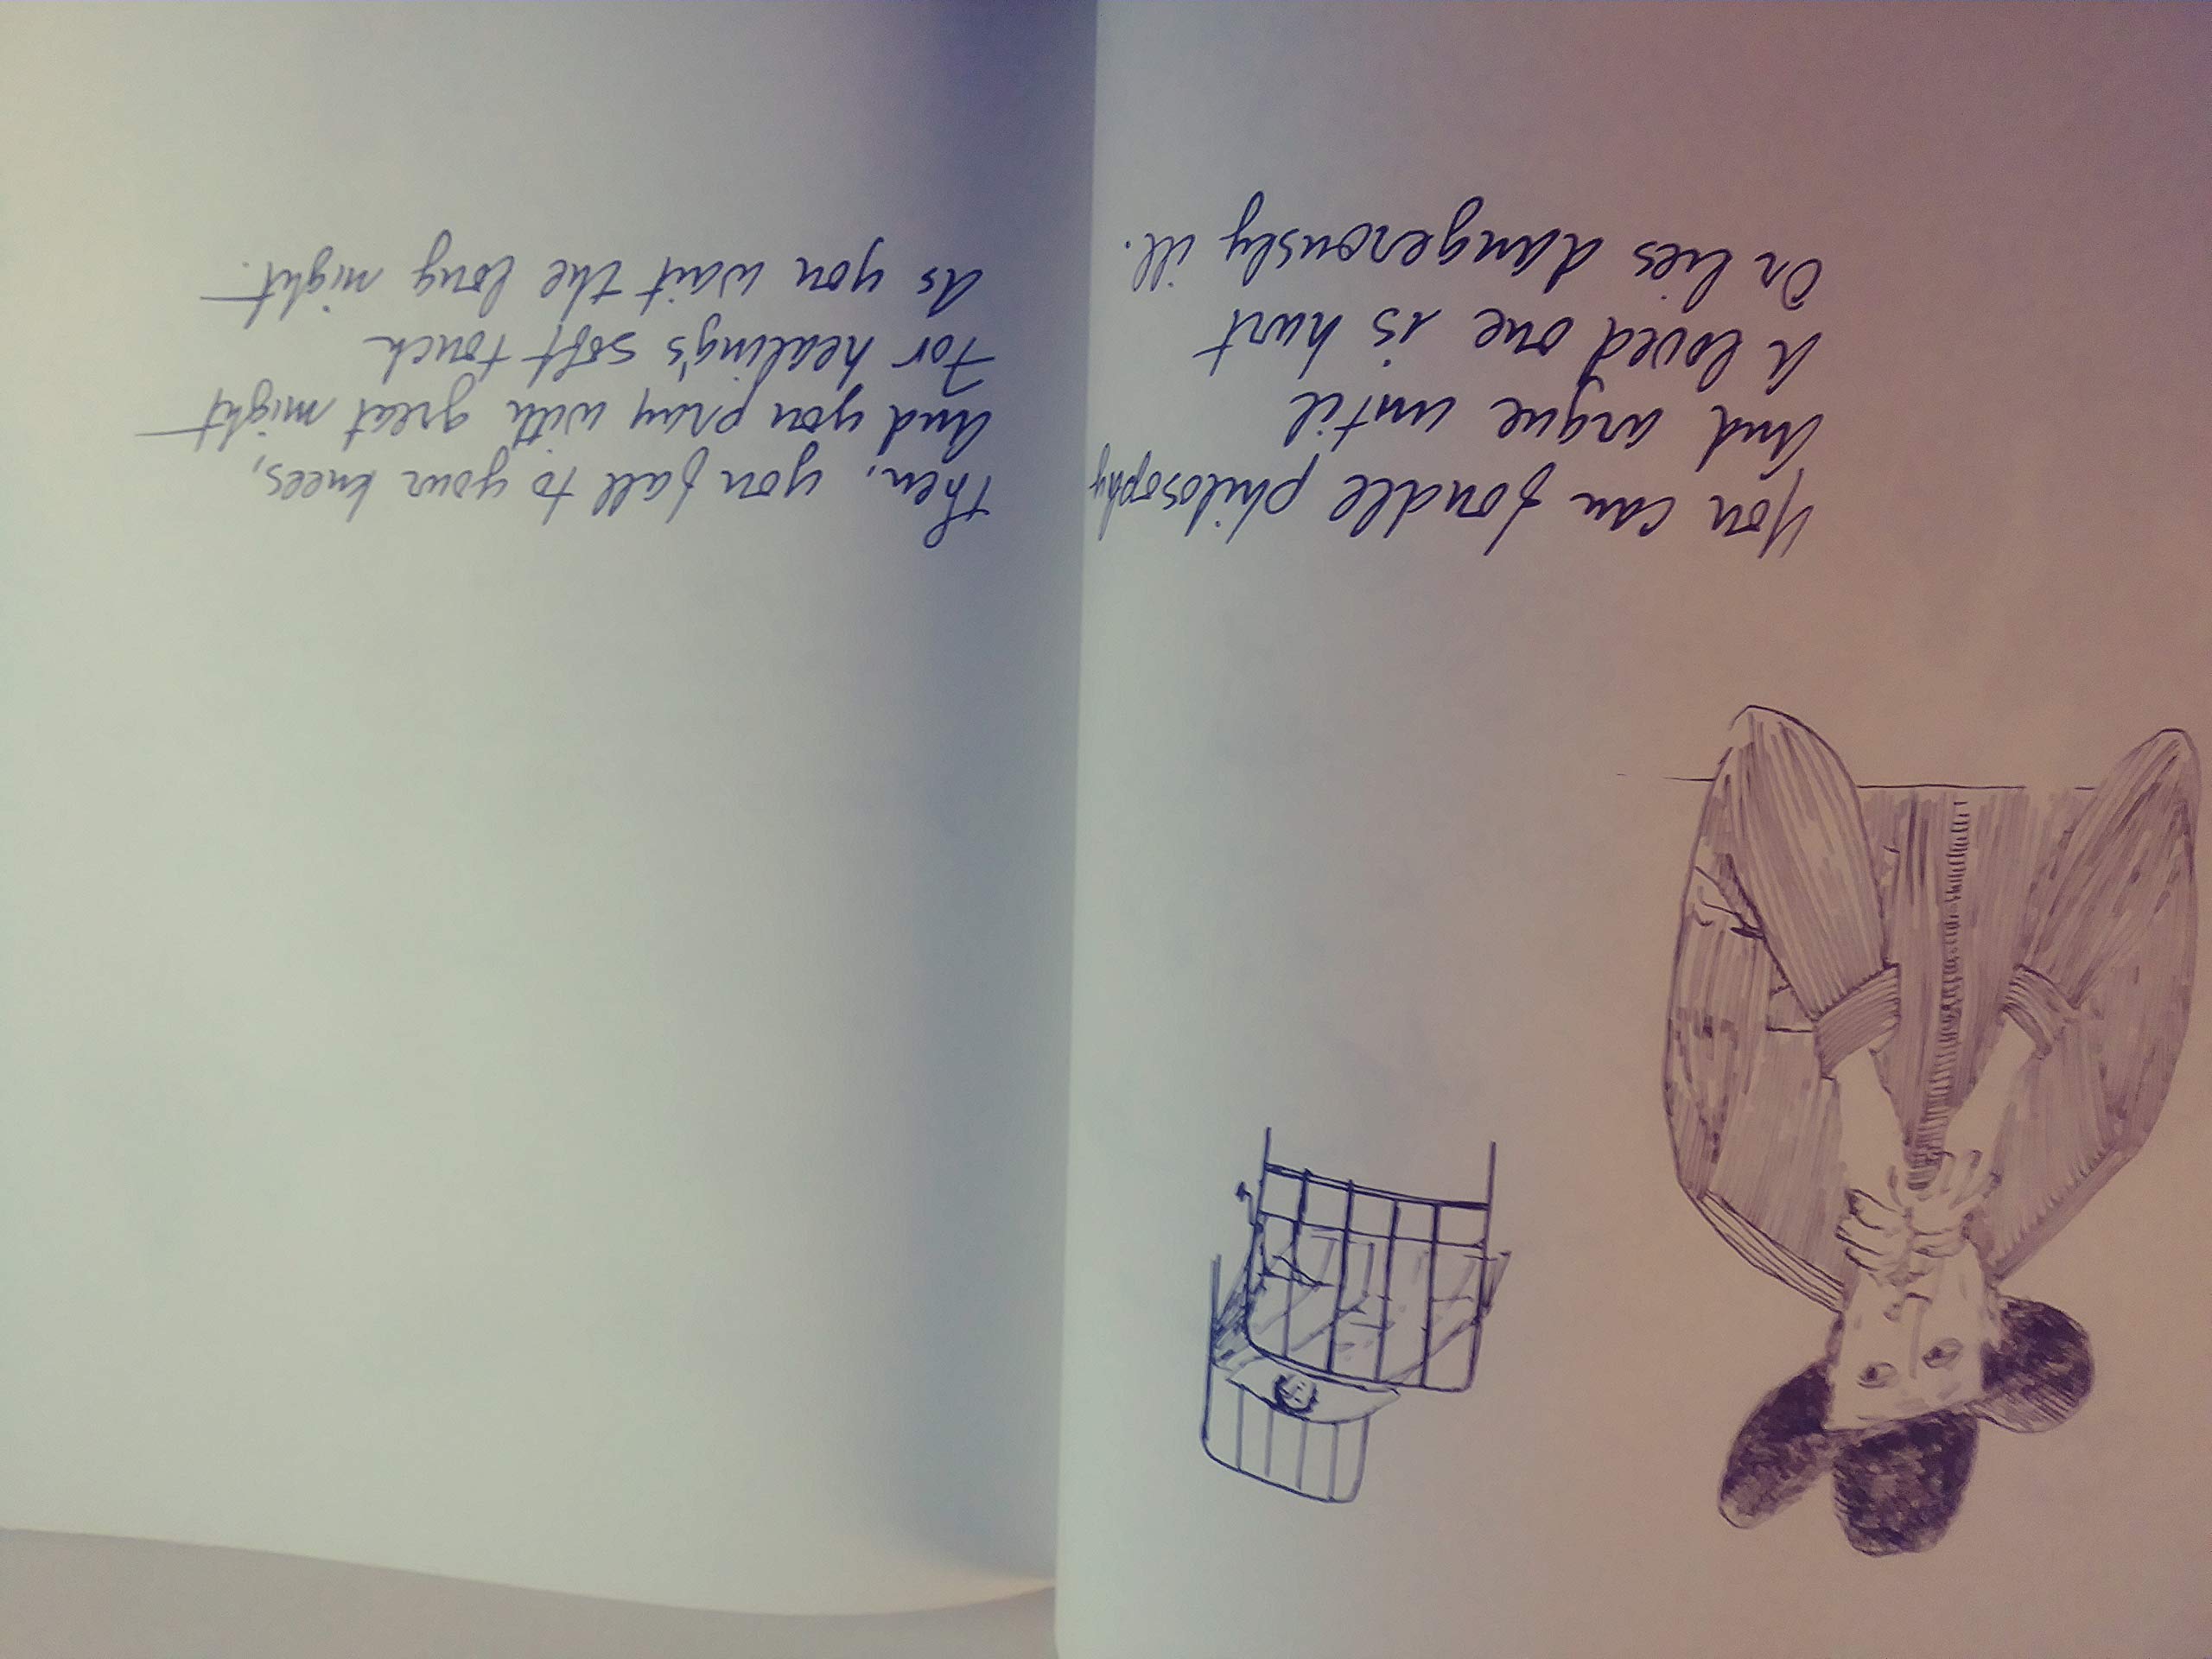 You can fondle philosophy
And argue until
A loved one is hurt
Or lies dangerously ill.
Then, you fall to your knees,
And you pray with great might
For healing's soft touch
As you wait the long night.